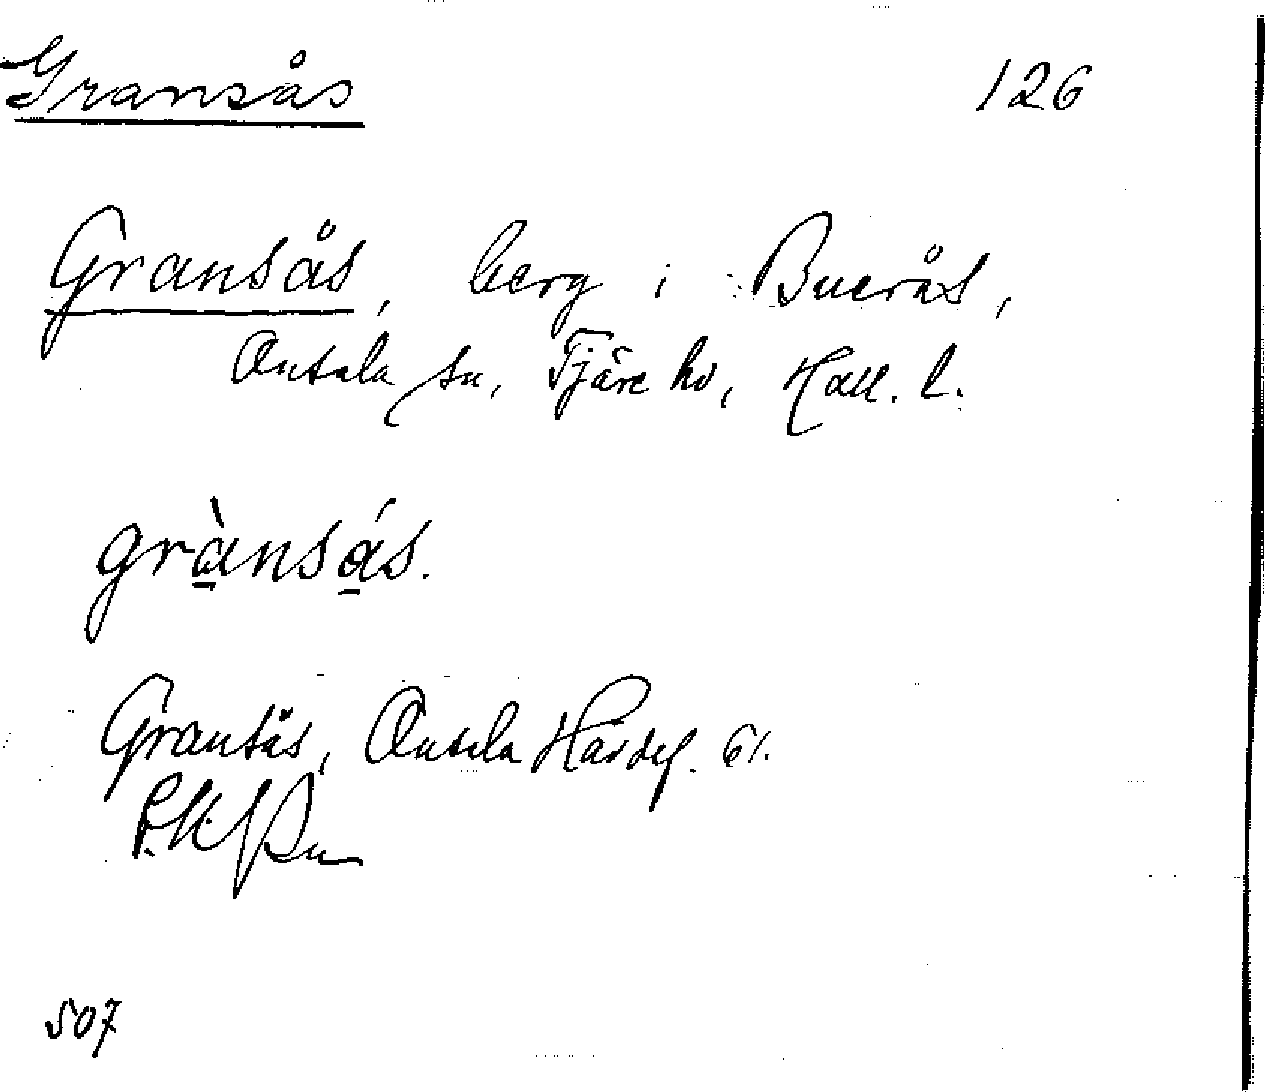 Gransås 126
Gransås, berg i Buerås,
Onsala sn, Fjäre hd, Hall. l.
grànsás.
Gransås, Onsala Härdef. 61.
507